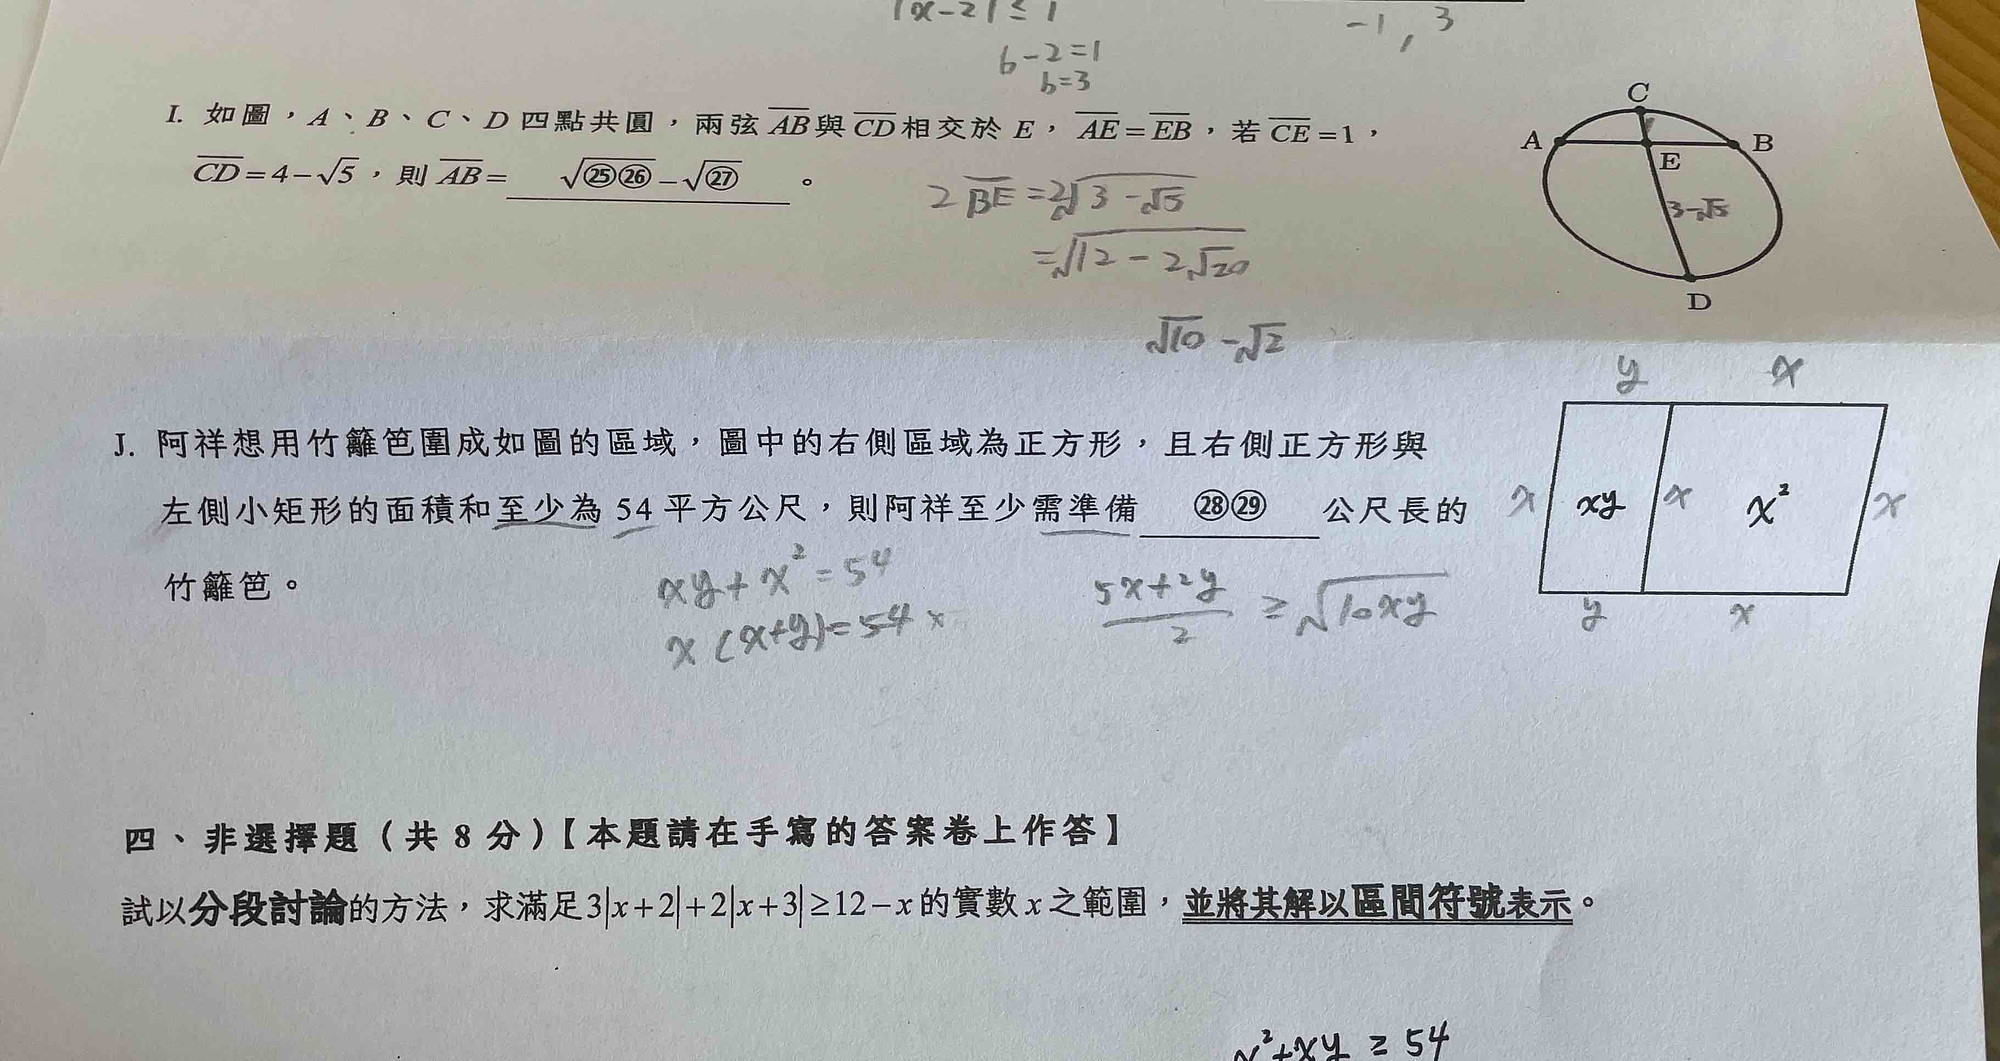 |x-2| ≤ 1
-1, 3
b-2=1
b=3
I. 如圖，A、B、C、D 四點共圓，兩弦 \overline{AB} 與 \overline{CD} 相交於 E，\overline{AE}=\overline{EB}，若 \overline{CE}=1，
\overline{CD}=4-√5，則 \overline{AB}= √㉕㉖-√㉗ 。
C
A
B
E
3-√5
D
2\overline{BE}=2√(3-√5)
=√(12-2√20)
√10-√2
J. 阿祥想用竹籬笆圍成如圖的區域，圖中的右側區域為正方形，且右側正方形與
左側小矩形的面積和至少為 54 平方公尺，則阿祥至少需準備 ㉘㉙ 公尺長的
竹籬笆。
y x
x xy x x² x
y x
xy+x²=54
x(x+y)=54
(5x+2y)/2 ≥ √(10xy)
四、非選擇題（共 8 分）【本題請在手寫的答案卷上作答】
試以分段討論的方法，求滿足 3|x+2|+2|x+3|≥12-x 的實數 x 之範圍，並將其解以區間符號表示。
x²+xy ≥ 54